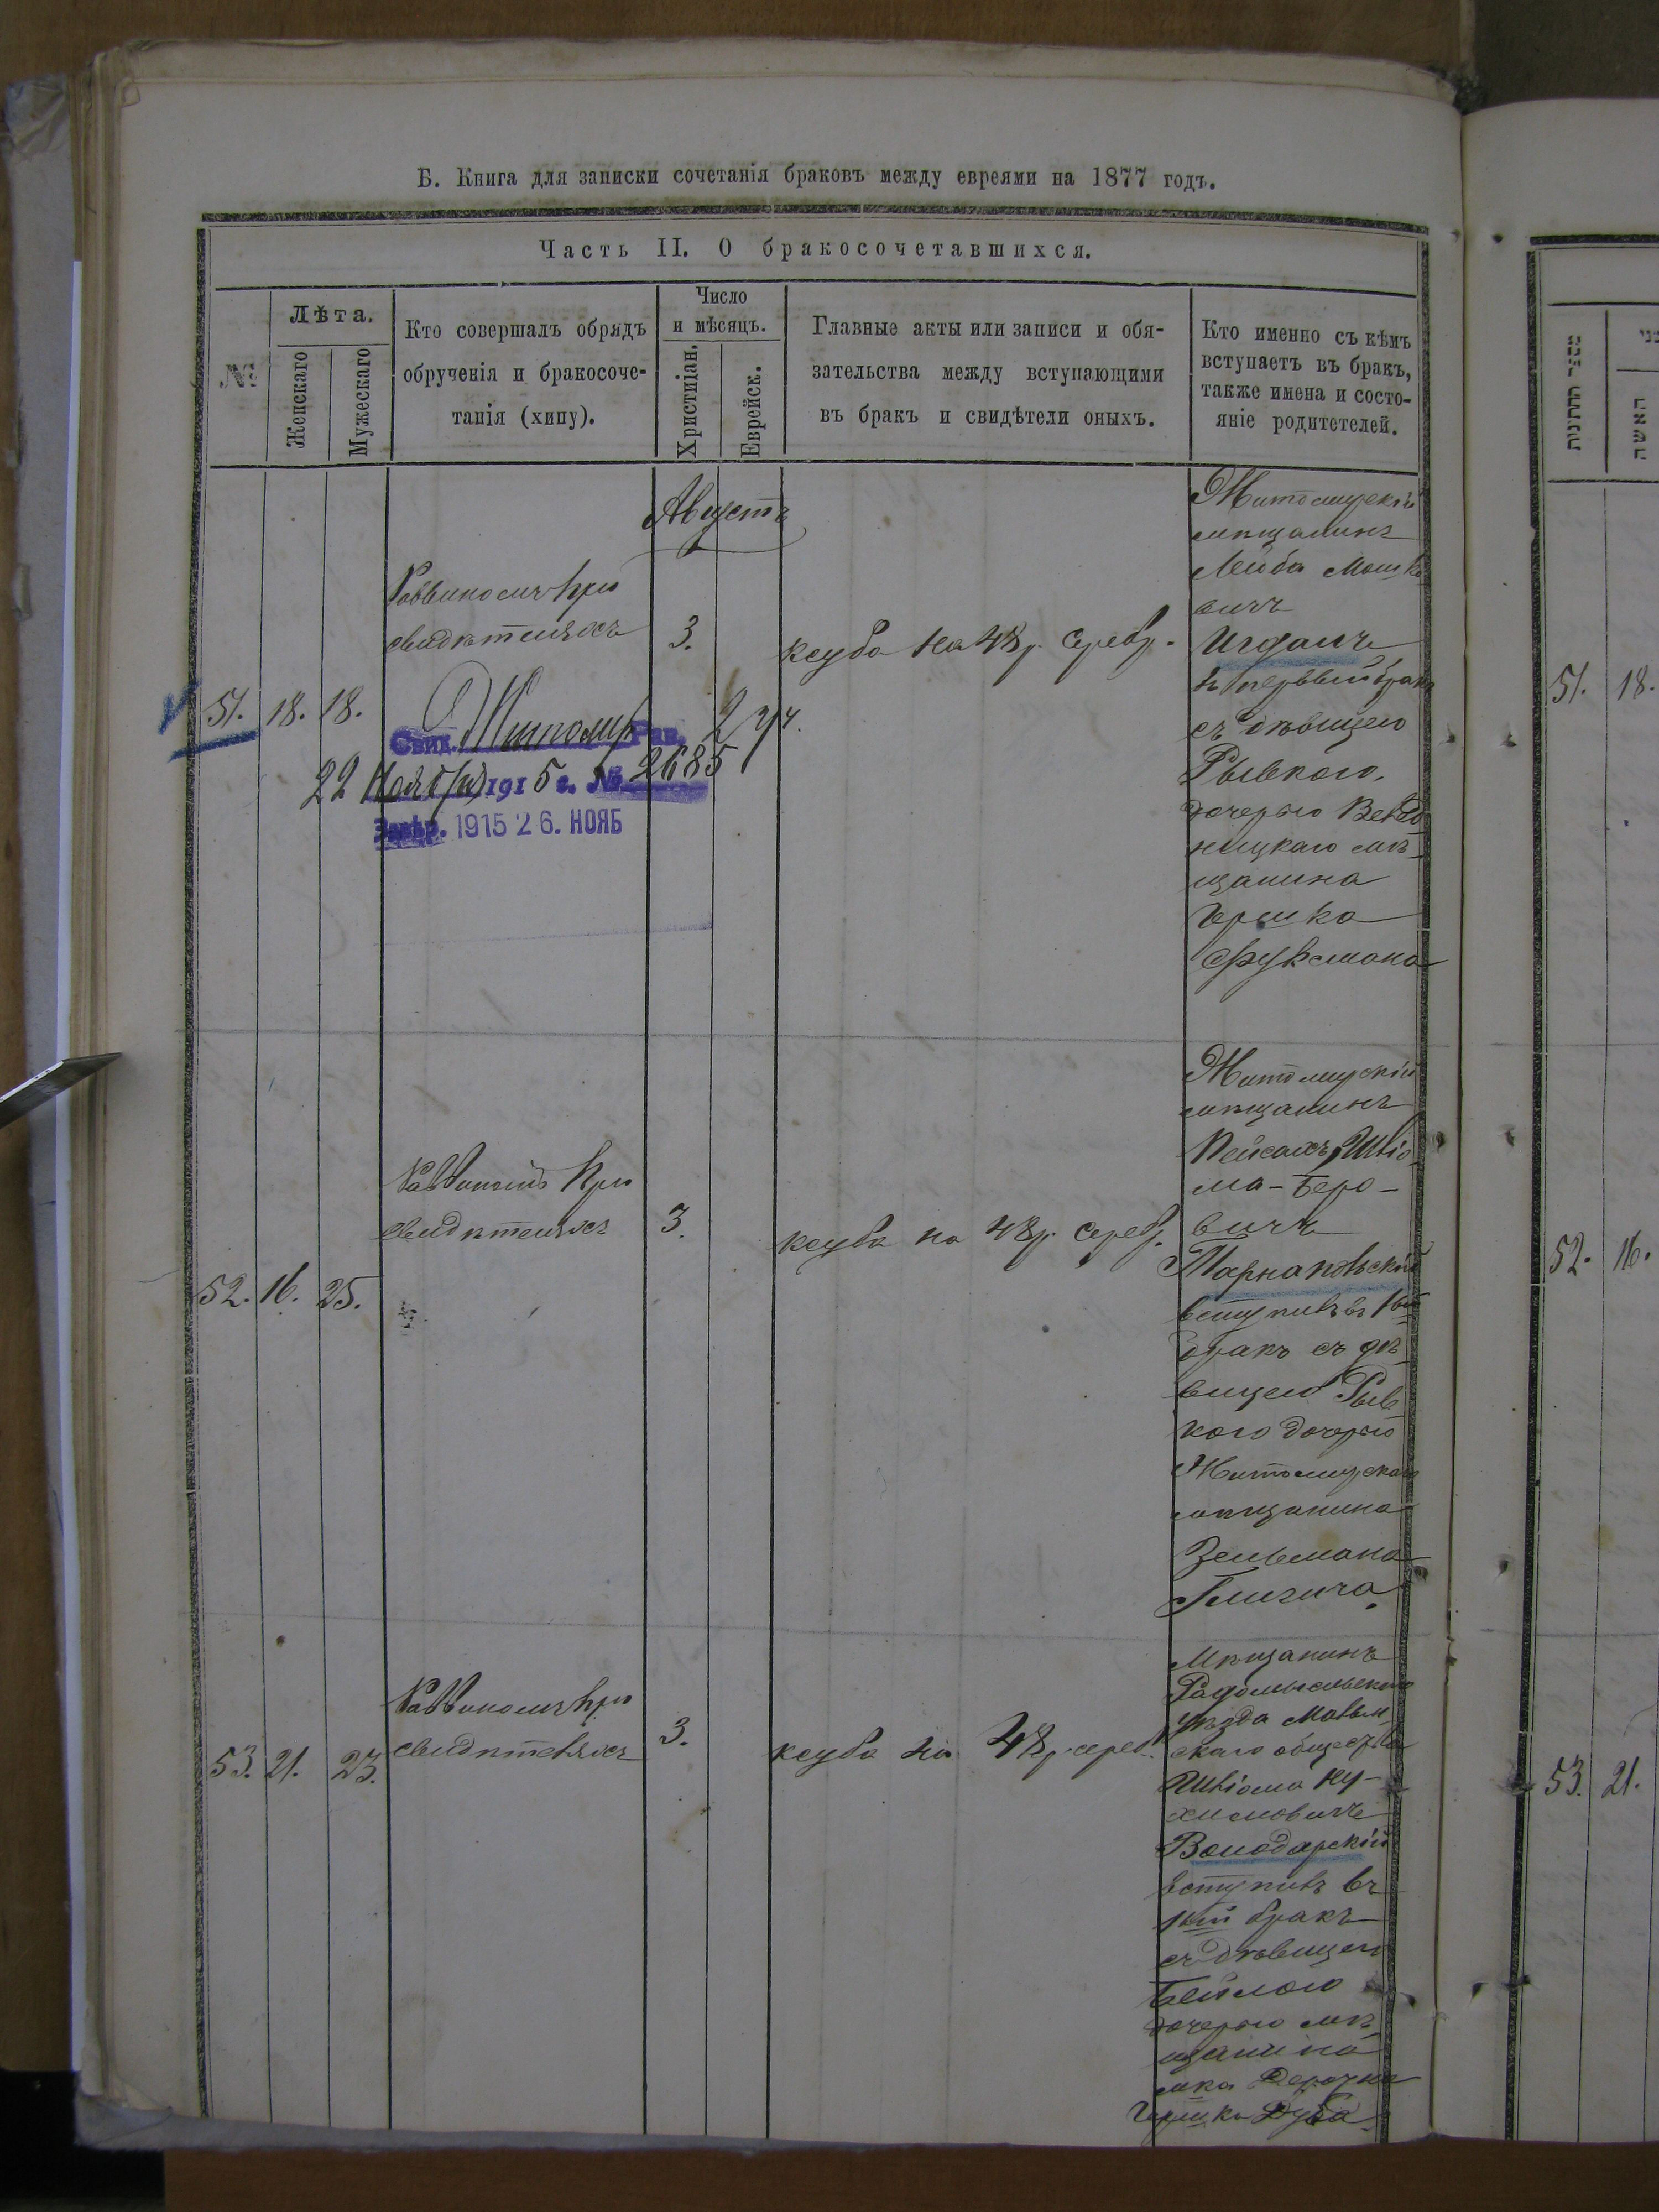 Б. Книга для записки сочетанія браковъ между евреями на 1877 годъ.
Часть II. О бракосочетавшихся.
№
Лѣта.
Женскаго
Мужескаго
Кто совершалъ обрядъ
обрученія и бракосоче-
танія (хипу).
Число
и мѣсяцъ.
Христіан.
Еврейск.
Главные акты или записи и обя-
зательства между вступающими
въ бракъ и свидѣтели оныхъ.
Кто именно съ кѣмъ
вступаетъ въ бракъ,
также имена и состо-
яніе родитетелей.
Августъ
51.
18.
18.
Раввиномъ при
свидѣтеляхъ
3.
ксуба на 48 р. серебр.
Житомирскій
мѣщанинъ
Лейба Мошко
вичъ
Игдалъ
въ первый бракъ
съ дѣвицею
Рывкою,
дочерью
ницкаго мѣ-
щанина
Гершка
Фуксмана
Свид. Житомир Рав.
22 Ноября 1915 г. № 2685
Завѣр. 1915 26. НОЯБ
52.
16.
25.
Раввиномъ при
свидѣтеляхъ
3.
ксуба на 48 р. серебр.
Житомирскій
мѣщанинъ
Пейсахъ Шліо
ма-Беро-
вичъ
Тарнаповскій
вступилъ въ 1ый
бракъ съ дѣ-
вицею Рыв
кою дочерью
Житомирскаго
мѣщанина
Зельмана
53.
21.
23.
Раввиномъ при
свидѣтеляхъ
3.
ксуба на 48 р. сереб.
Мѣщанинъ
Радомысльскаго
уѣзда
скаго общества
Шліома Ну-
химовичъ
Володарскій
вступилъ въ
1ый бракъ
съ дѣвицею
Бейлою
дочерью мѣ-
щанина
Гершка Дуба
מספר החתונות
האשה
51.
18.
52.
16.
53.
21.